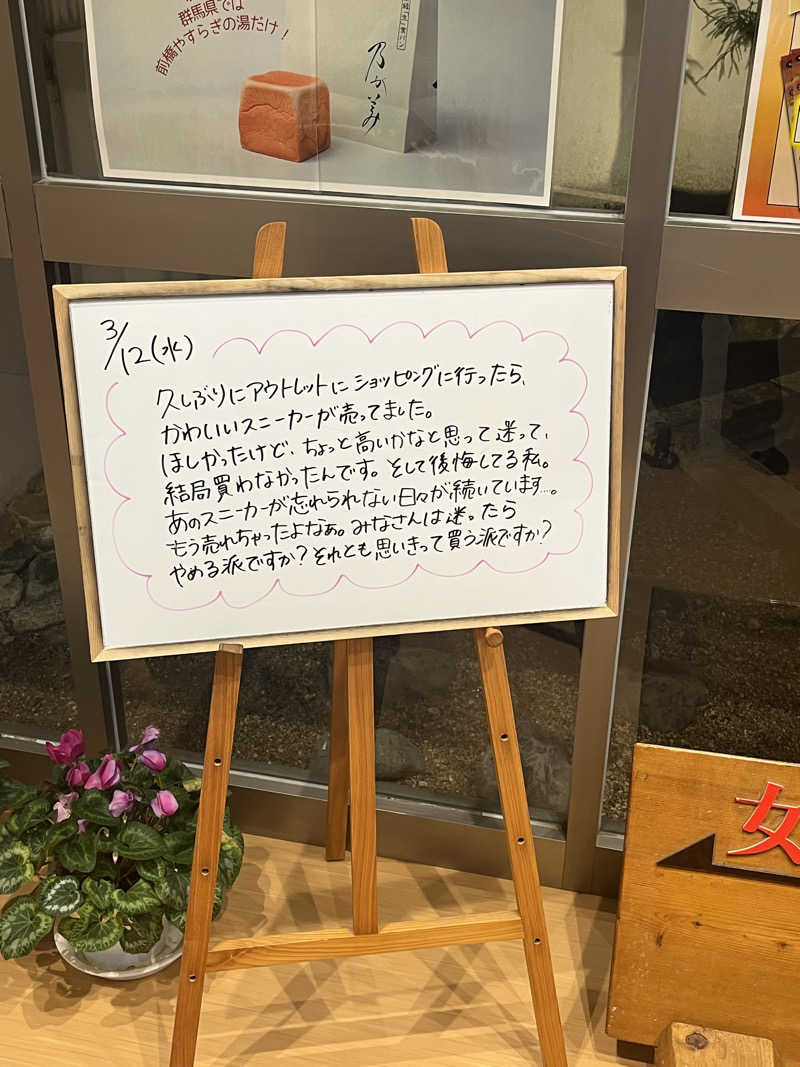 群馬県では
前橋やすらぎの湯だけ!
乃が美
3/12(水)
久しぶりにアウトレットにショッピングに行ったら、
かわいいスニーカーが売ってました。
ほしかったけど、ちょっと高いかなと思って迷って、
結局買わなかったんです。そして後悔してる私。
あのスニーカーが忘れられない日々が続いています…。
もう売れちゃったよなぁ。みなさんは迷ったら
やめる派ですか?それとも思いきって買う派ですか?
女